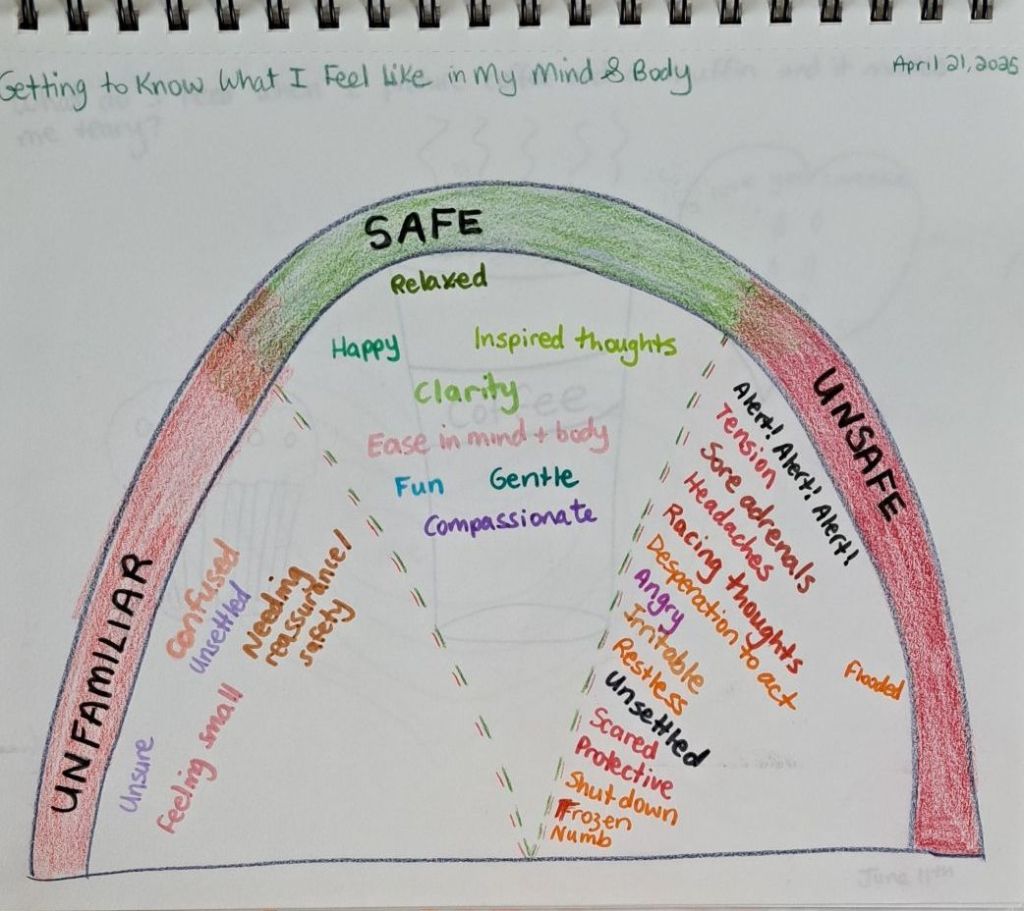 Getting to Know What I Feel Like in My Mind & Body
April 21, 2025
me teary?
SAFE
Relaxed
Happy
Inspired thoughts
Clarity
Ease in mind + body
Fun
Gentle
Compassionate
UNFAMILIAR
Confused
Unsettled
Needing
reassurance/
safety
Unsure
Feeling small
UNSAFE
Alert! Alert! Alert!
Tension
Sore adrenals
Headaches
Racing thoughts
Desperation to act
Angry
Irritable
Restless
Unsettled
Scared
Protective
Shut down
Frozen
Numb
Flooded
Coffee
June 11th